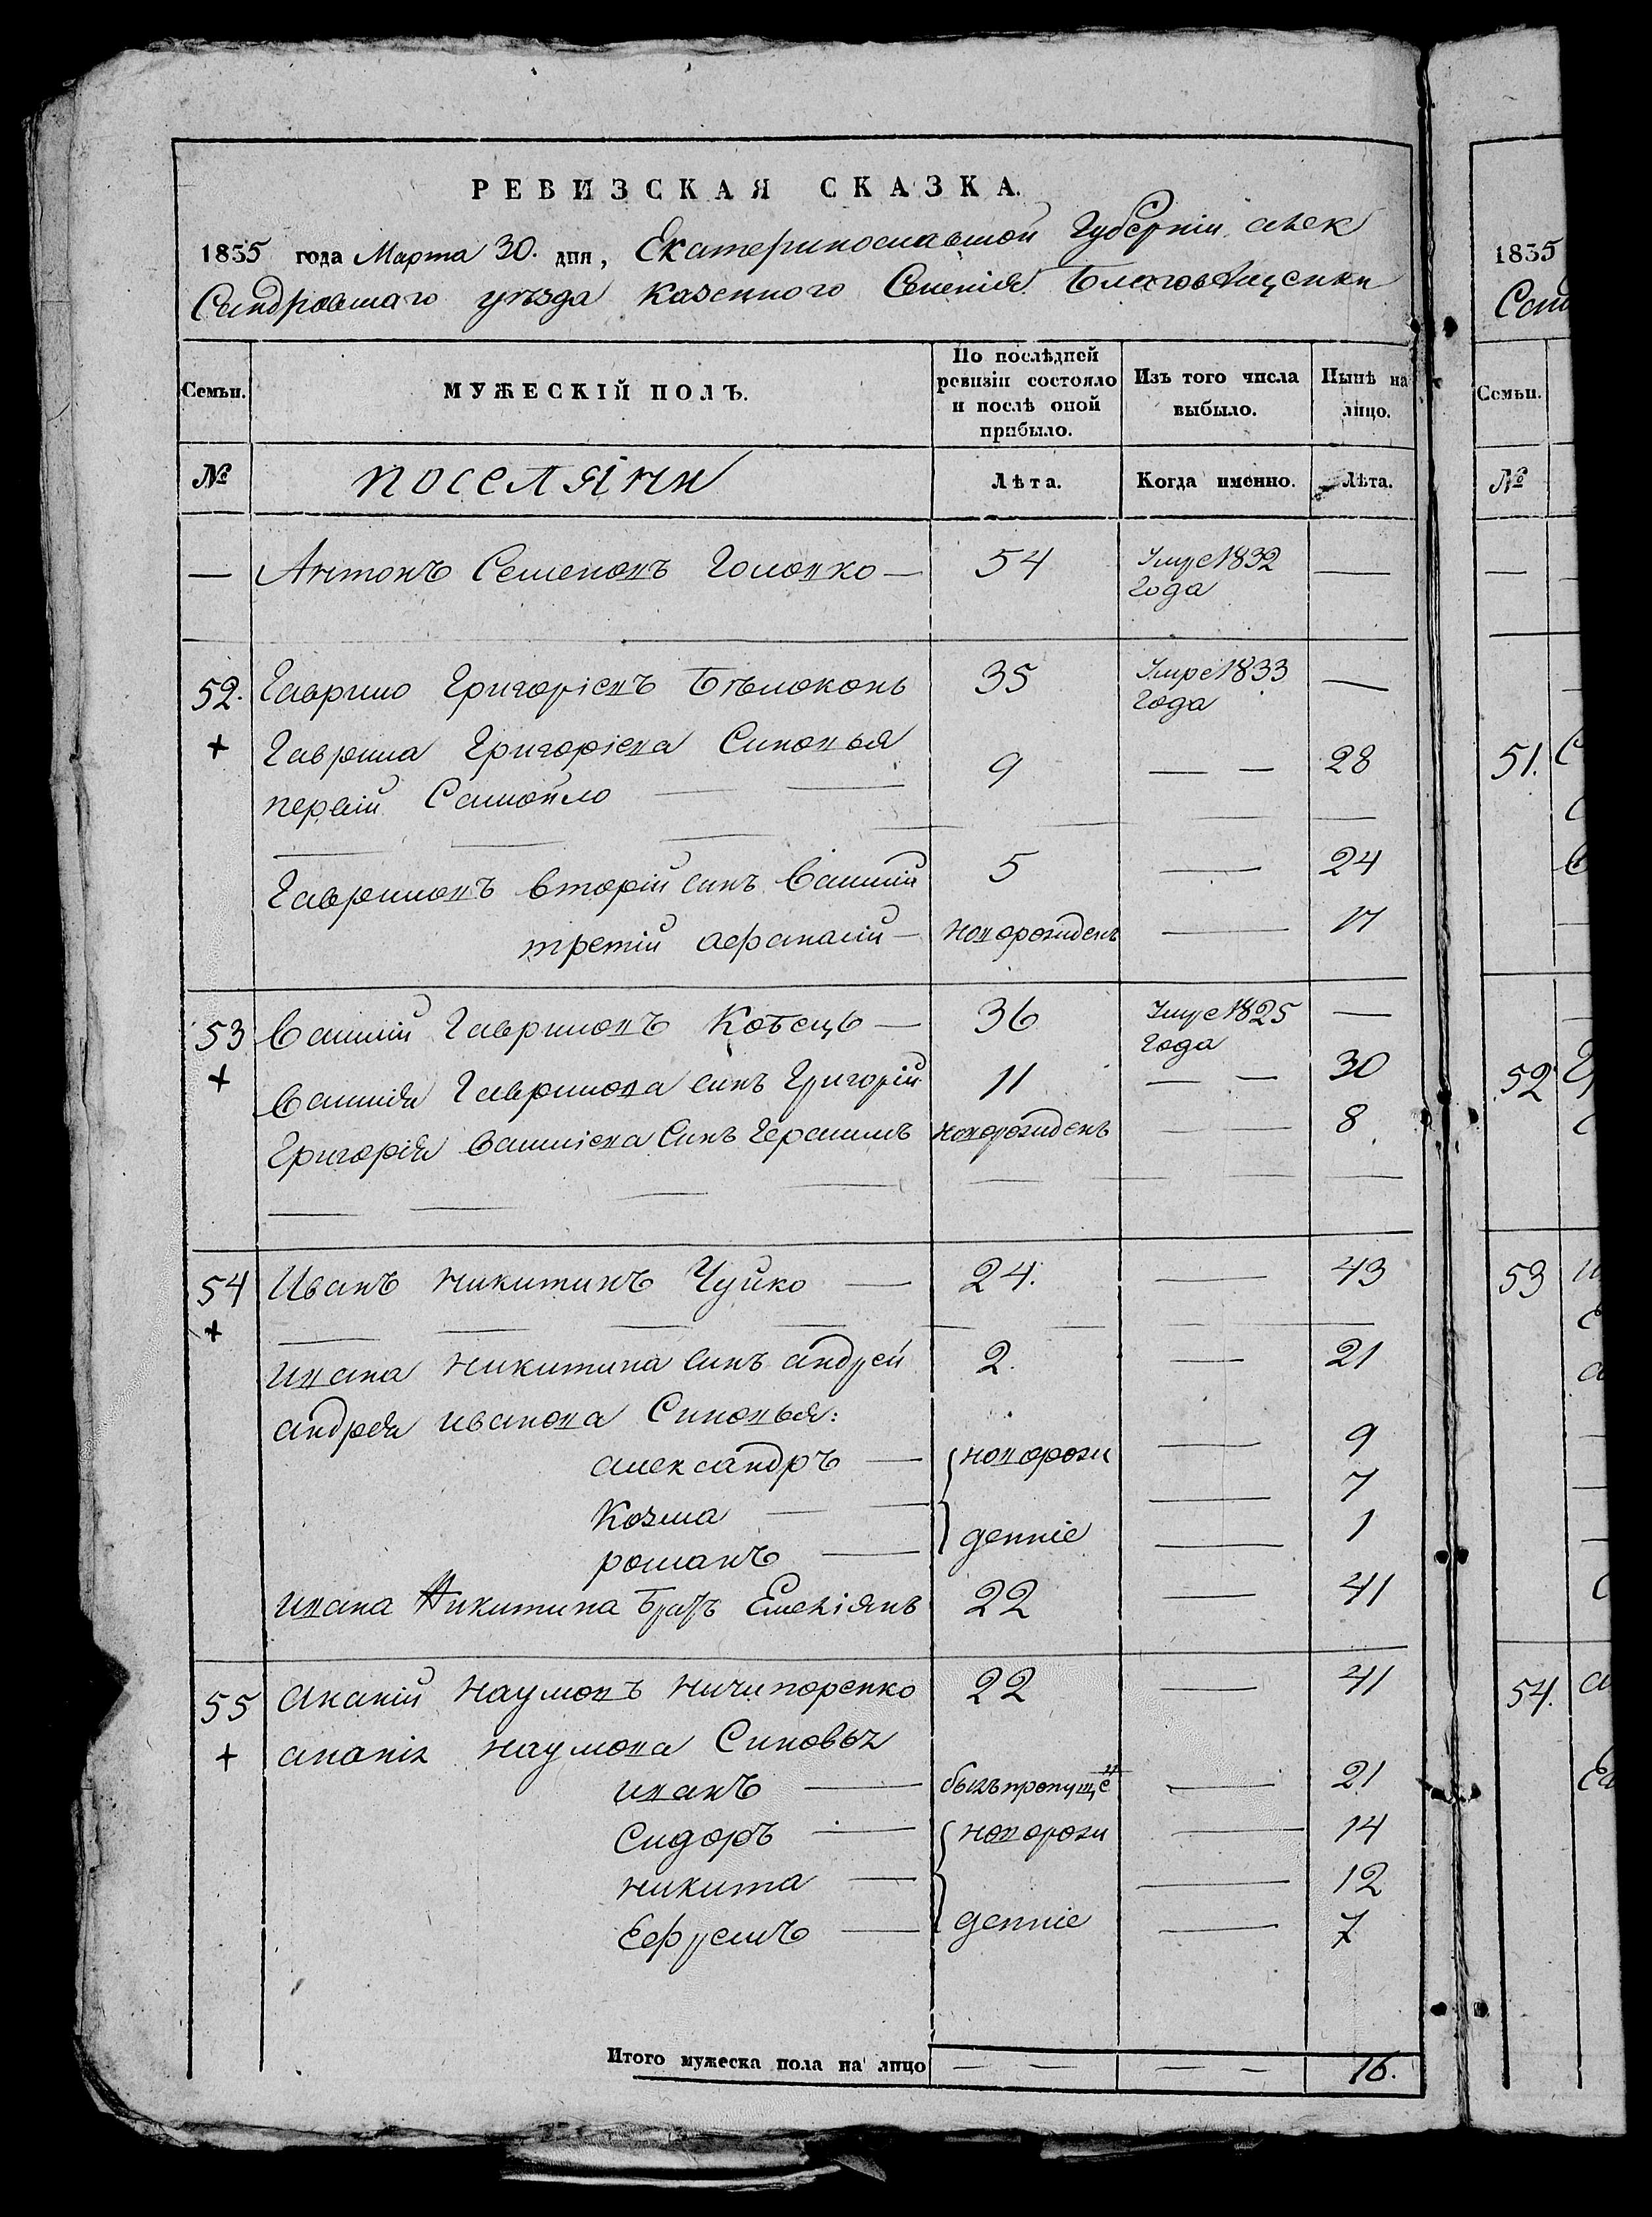 РЕВИЗСКАЯ СКАЗКА.
1835 года Марта 30. дня, Екатеринославской Губерніи Алек
Сандровскаго уѣзда казенного Селенія Благовѣщенки
Семьи.
МУЖЕСКІЙ ПОЛЪ.
По послѣдней ревизіи состояло и послѣ оной прибыло.
Изъ того числа выбыло.
Нынѣ на лицо.
№
поселяне
Лѣта.
Когда именно.
Лѣта.
— Антонъ Семеновъ Головко — 54 Умре 1832 года —
52. Гаврило Григоріевъ Бѣлоконь 35 Умре 1833 года —
+ Гаврила Григоріева Синовья
первій Самойло — — 9 — — 28
Гавриловъ вторій синъ Василій 5 — 24
третій Афанасій — новорожденъ — 17
53 Василій Гавриловъ Кобецъ — 36 Умре 1825 года —
+ Василія Гаврилова синъ Григорій 11 — — 30
Григорія Василіева Синъ Герасимъ новорожденъ — 8
54 Иванъ Никитинъ Чуйко — 24. — 43
+
Ивана Никитина синъ андрей 2. — 21
андрея иванова Синовья:
александръ — новорож — 9
Козма — — 7
романъ — денніе — 1
Ивана Никитина братъ Емеліянъ 22 — 41
55 Ананій Наумовъ Ничипоренко 22 — 41
+ ананія Наумова Синовья
иванъ — былъ пропущен — 21
Сидоръ — новорож — 14
никита — — 12
Ефремъ — денніе — 7
Итого мужеска пола на лицо — — — — 16.
1835
Санд
Семьи.
№
51.
52
53
54.